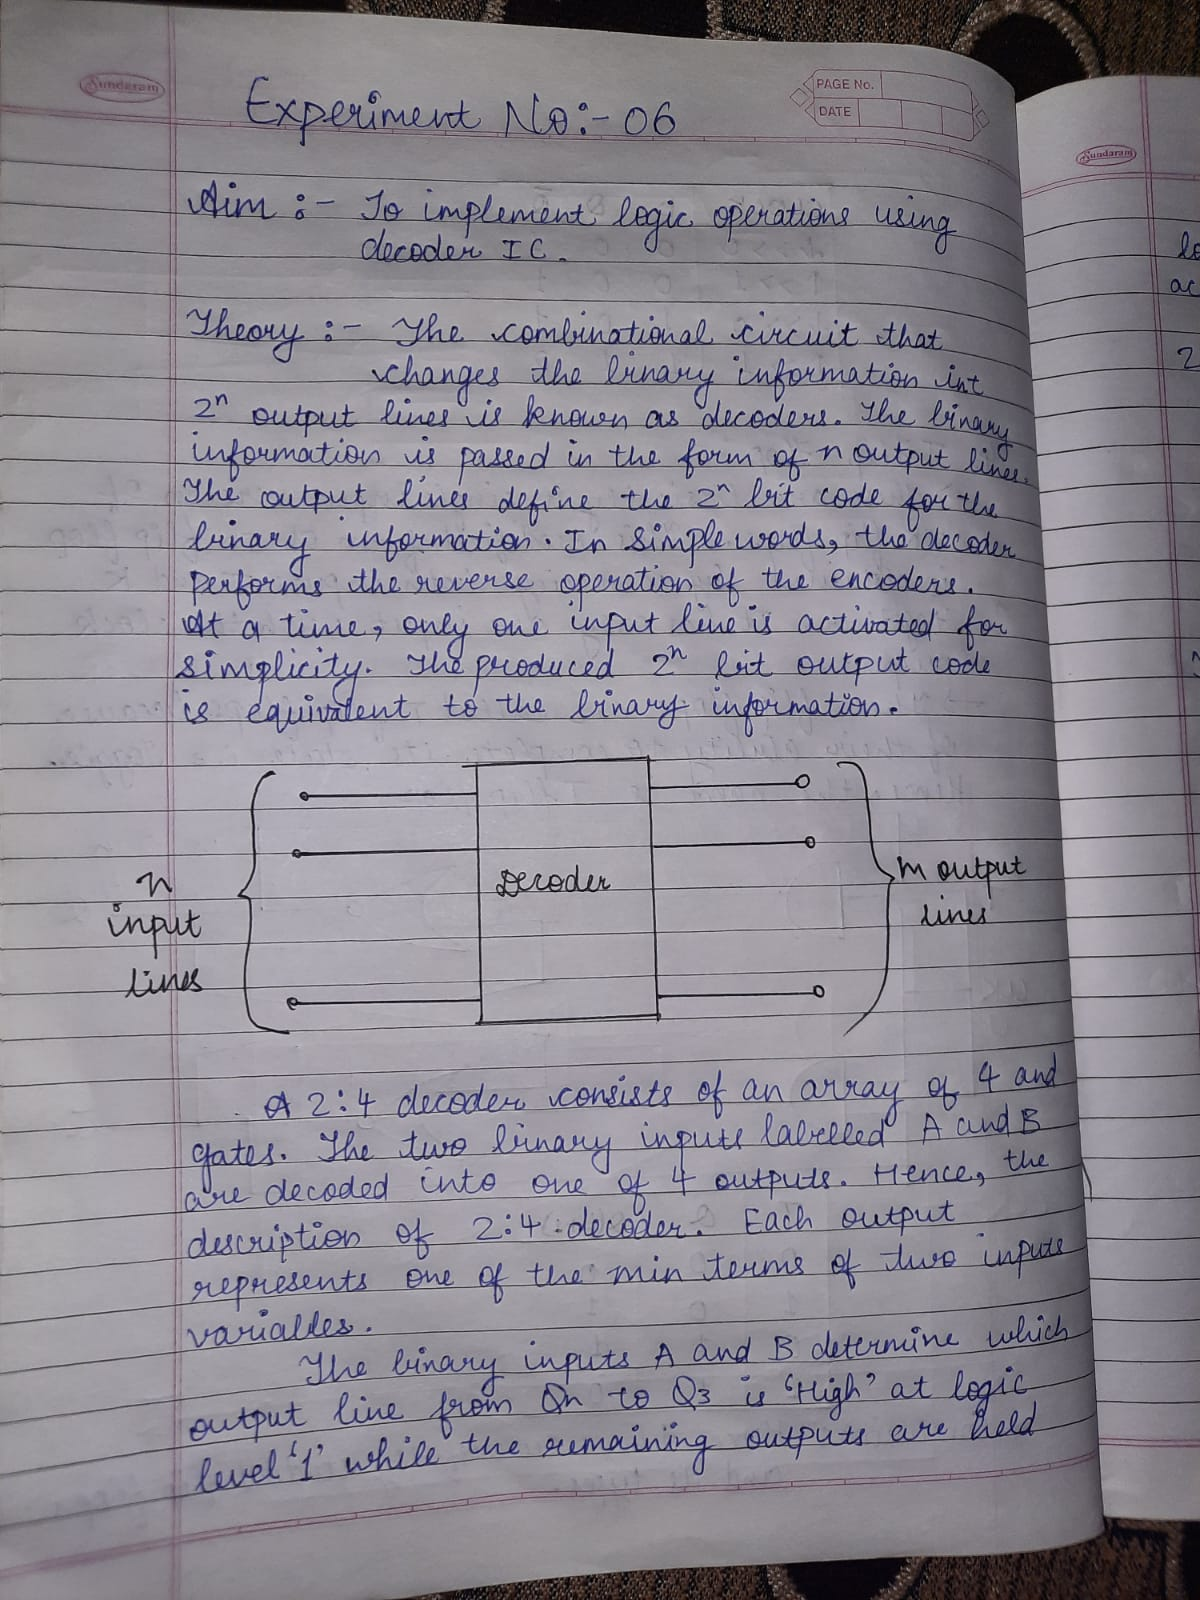 Sundaram
PAGE No.
DATE
Experiment No:- 06
Aim :- To implement logic operations using
decoder IC.
Theory :- The combinational circuit that
changes the binary information int
2ⁿ output lines is known as decoders. The binary
information is passed in the form of n output lines.
The output lines define the 2ⁿ bit code for the
binary information. In simple words, the decoder
performs the reverse operation of the encoders.
At a time, only one input line is activated for
simplicity. The produced 2ⁿ bit output code
is equivalent to the binary information.
n
input
lines
Decoder
m output
lines
A 2:4 decoder consists of an array of 4 and
gates. The two binary inputs labelled A and B
are decoded into one of 4 outputs. Hence, the
description of 2:4 decoder. Each output
represents one of the min terms of two inputs
variables.
The binary inputs A and B determine which
output line from Qn to Q3 is 'High' at logic
level '1' while the remaining outputs are held
Sundaram
ac
2